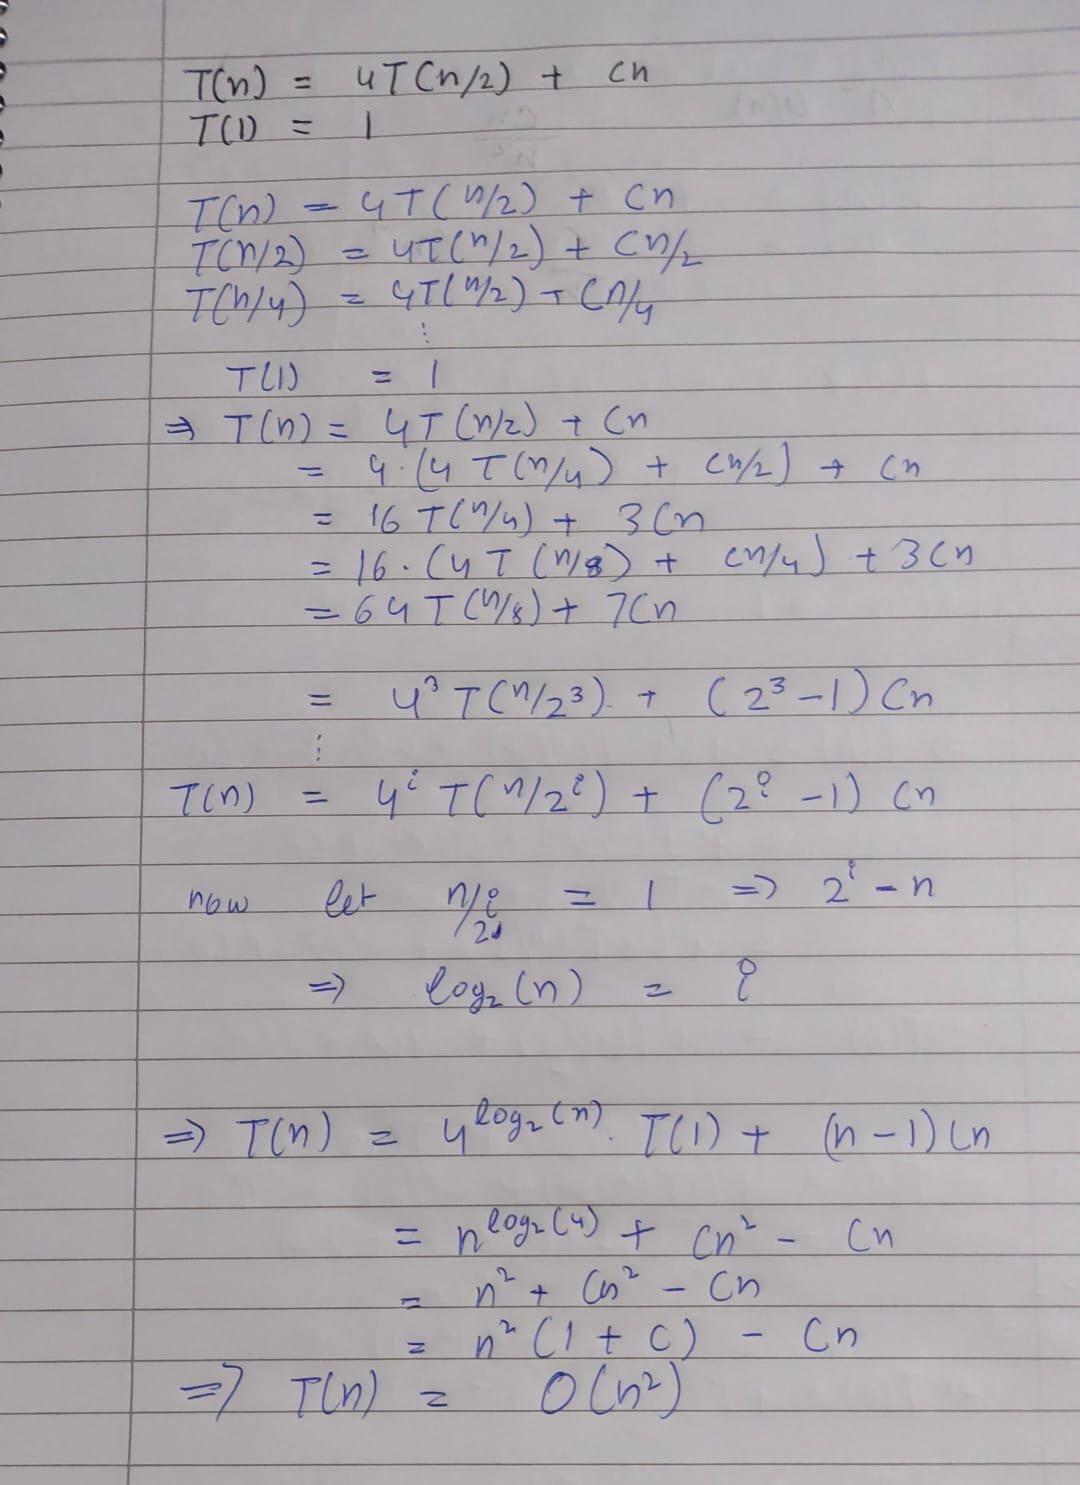 T(n) = 4T(n/2) + cn
T(1) = 1
T(n) = 4T(n/2) + cn
T(n/2) = 4T(n/2) + cn/2
T(n/4) = 4T(n/2) + cn/4
⋮
T(1) = 1
⇒ T(n) = 4T(n/2) + cn
= 4·(4T(n/4) + cn/2) + cn
= 16T(n/4) + 3cn
= 16·(4T(n/8) + cn/4) + 3cn
= 64T(n/8) + 7cn
= 4³T(n/2³) + (2³-1)cn
⋮
T(n) = 4ⁱT(n/2ⁱ) + (2ⁱ-1)cn
now let n/2ⁱ = 1 ⇒ 2ⁱ - n
⇒ log₂(n) = i
⇒ T(n) = 4^log₂(n) · T(1) + (n-1)cn
= n^log₂(4) + cn² - cn
= n² + cn² - cn
= n²(1 + c) - cn
⇒ T(n) = O(n²)